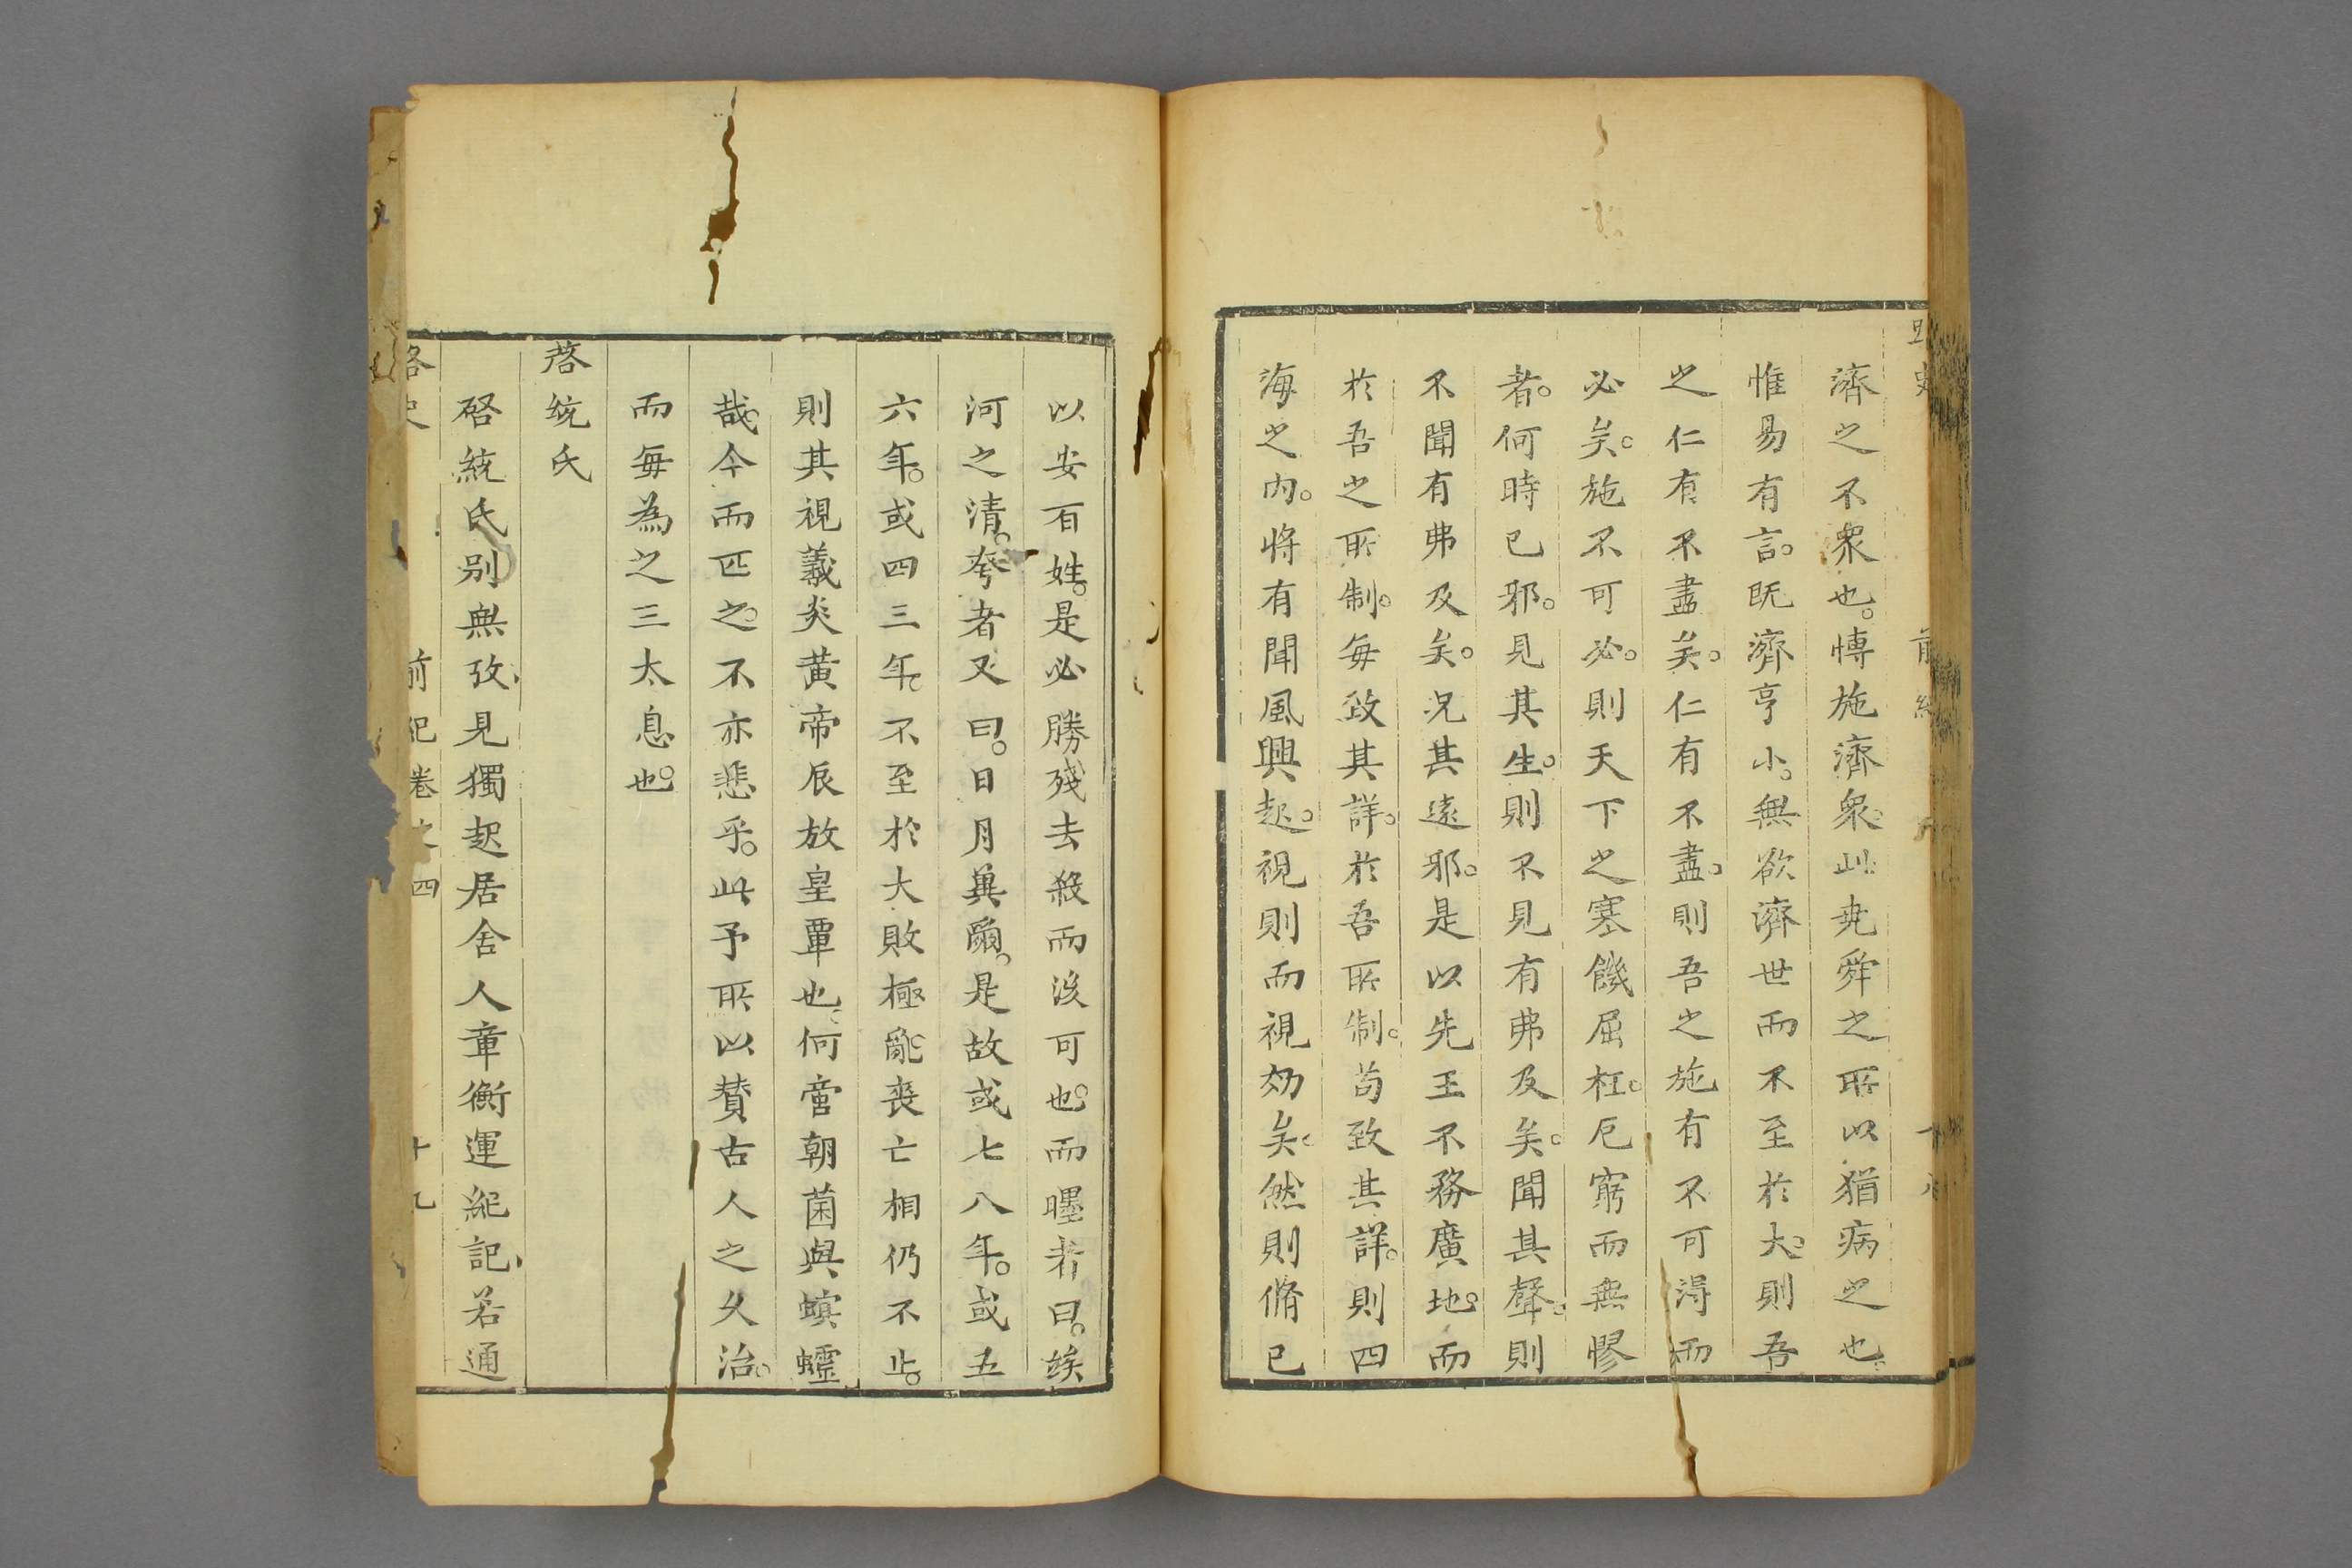 濟之不衆也。愽施濟衆。此尭舜之所以猶病之也。
惟易有言。既濟亨小。無欲濟世而不至於大。則吾
之仁有不盡矣。仁有不盡。則吾之施有不可淂而
必矣。施不可必。則天下之寒饑屈枉。厄窮而無憀
者。何時已邪。見其生。則不見有弗及矣。聞其聲。則
不聞有弗及矣。况其遠邪。是以先王不務廣地。而
於吾之所制。毎致其詳。於吾所制。苟致其詳。則四
海之内。將有聞風興起。視則而視効矣。然則脩已
以安百姓。是必勝殘去殺而後可也。而嚜者曰。俟
河之清。夸者又曰。日月兾爾。是故或七八年。或五
六年。或四三年。不至於大敗極亂。喪亡相仍不止。
則其視羲炎黄帝辰放皇覃也。何啻朝菌與螟蠦
哉。今而匹之。不亦悲乎。此予所以賛古人之乆治。
而毎為之三太息也。
啓統氏
啓統氏别無攷見獨起居舍人章衡運紀記若通
路史 前紀卷之四 十九